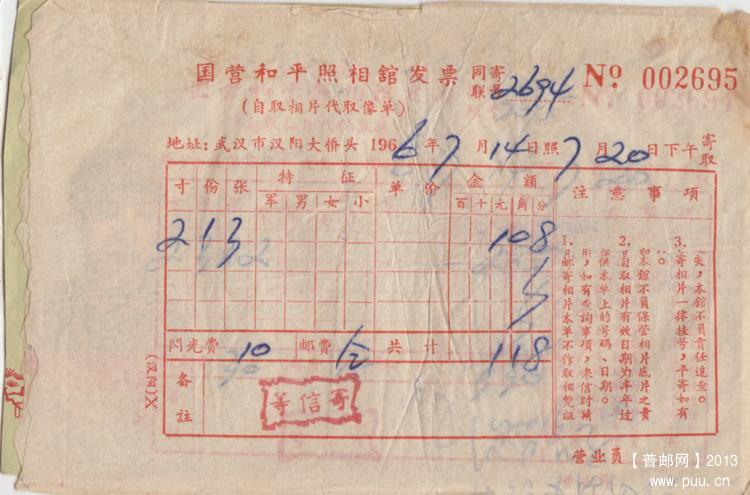 国营和平照相舘发票 同寄联号 2694 Nº 002695
(自取相片代取像单)
地址:武汉市汉阳大桥头 1966年7月14日照7月20日下午寄取
寸 份 张 特征 单价 金额 注意事项
军 男 女 小 百 十 元 角 分
2 1 3 108
闪光费 10 邮费 共计 118
备註
寄信等
1.邮寄相片本单不作取相凭证
用,如有查询事项,来信时请
2.自取相片有效日期为半年过
供本单上的号码、日期。
本舘不负保管相片底片之责
。
3.寄相片一律挂号,平寄如有
失,本舘不负责任追查。
营业员
【普邮网】2013
www.puu.cn